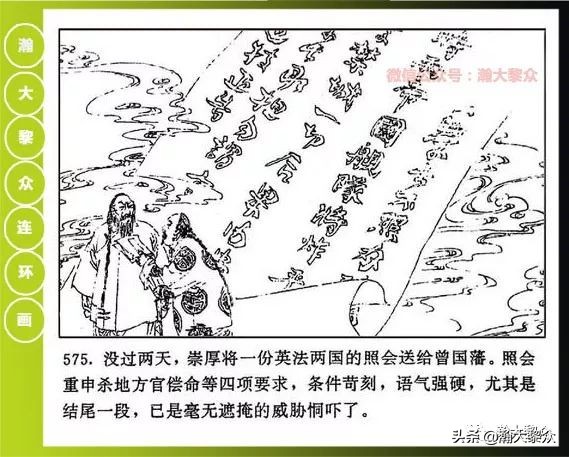 瀚
大
黎
众
连
环
画
微信公众号：瀚大黎众
國艦隊將炸
一切后果由
575. 没过两天，崇厚将一份英法两国的照会送给曾国藩。照会
重申杀地方官偿命等四项要求，条件苛刻，语气强硬，尤其是
结尾一段，已是毫无遮掩的威胁恫吓了。
头条@瀚大黎众